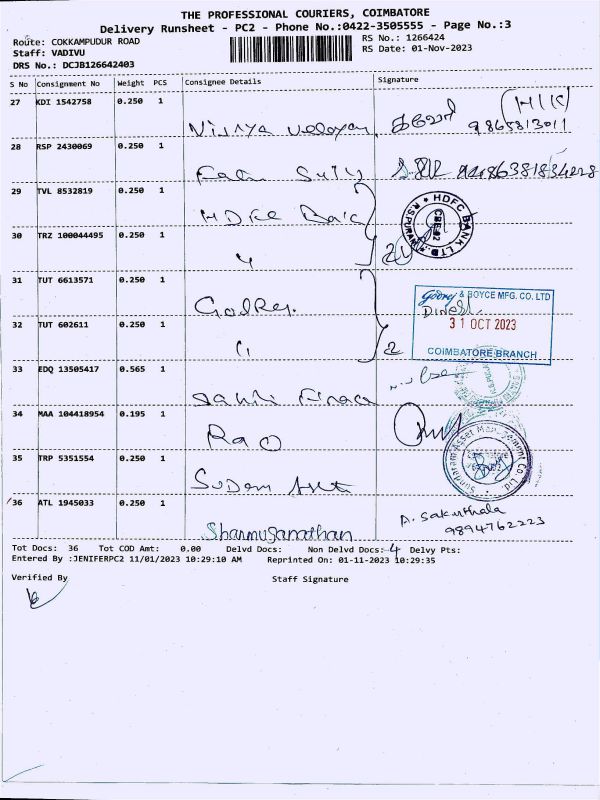 THE PROFESSIONAL COURIERS, COIMBATORE
Delivery Runsheet - PC2 - Phone No.:0422-3505555 - Page No.:3
Route: COKKAMPUDUR ROAD
RS No.: 1266424
Staff: VADIVU
RS Date: 01-Nov-2023
DRS No.: DCJB126642403
S No Consignment No Weight PCS Consignee Details Signature
27 KDI 1542758 0.250 1
(H/K)
9865813011
28 RSP 2430069 0.250 1
29 TVL 8532819 0.250 1
HDFC BANK LTD.
R.S.PURAM
30 TRZ 100044495 0.250 1
"
31 TUT 6613571 0.250 1
Godrej
Godrej & BOYCE MFG. CO. LTD
Dinesh
31 OCT 2023
COIMBATORE BRANCH
32 TUT 602611 0.250 1
"
2
33 EDQ 13505417 0.565 1
34 MAA 104418954 0.195 1
Rao
Sundaram Asset Management Co Ltd.
35 TRP 5351554 0.250 1
36 ATL 1945033 0.250 1
Shanmuganathan
A. Sakunthala
9894762223
Tot Docs: 36 Tot COD Amt: 0.00 Delvd Docs: Non Delvd Docs: 4 Delvy Pts:
Entered By :JENIFERPC2 11/01/2023 10:29:10 AM Reprinted On: 01-11-2023 10:29:35
Verified By Staff Signature